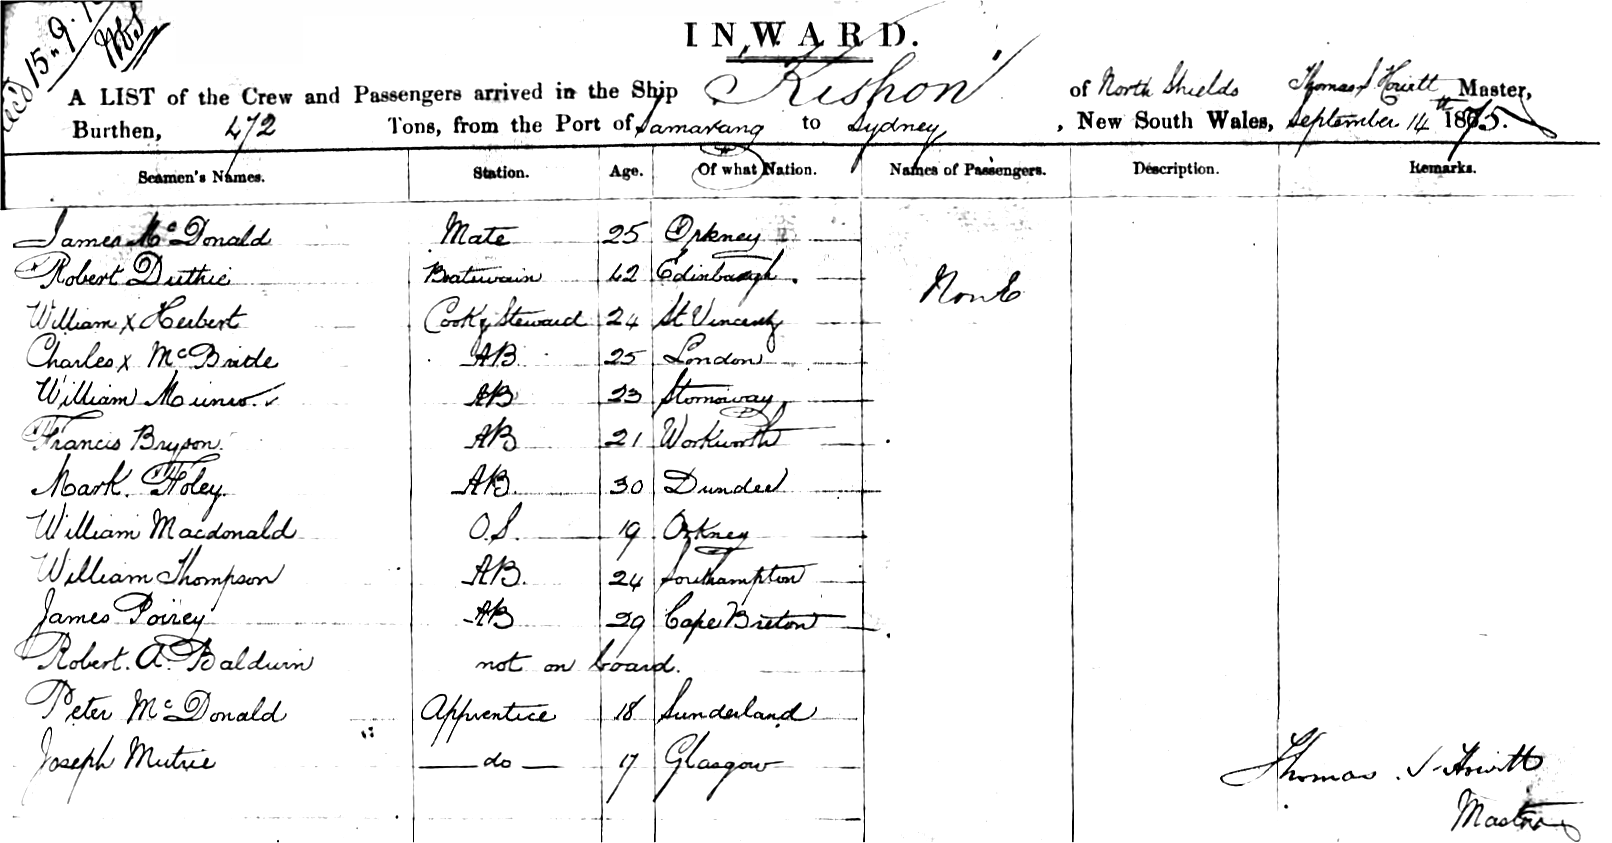 Rec'd 15.9.
INWARD.
A LIST of the Crew and Passengers arrived in the Ship "Kishon" of North Shields Thomas S Howitt Master,
Burthen, 472 Tons, from the Port of Samarang to Sydney, New South Wales, September 14th 1875.
Seamen's Names. Station. Age. Of what Nation. Names of Passengers. Description. Remarks.
James McDonald Mate 25 Orkney
Robert Duthie Boatswain 42 Edinburgh.
None
William X Herbert Cook & Steward 24 St Vincent
Charles X McBride AB 25 London
William Munro. AB 23 Stornoway
Francis Bryson. AB 21 Workworth
Mark. Foley. AB. 30 Dundee
William Macdonald O.S. 19 Orkney
William Thompson AB. 24 Southampton
James Poirey AB 29 Cape Breton
Robert. A. Baldwin not on board.
Peter McDonald Apprentice 18 Sunderland
Joseph Mutrie do 17 Glasgow
Thomas S Howitt
Master